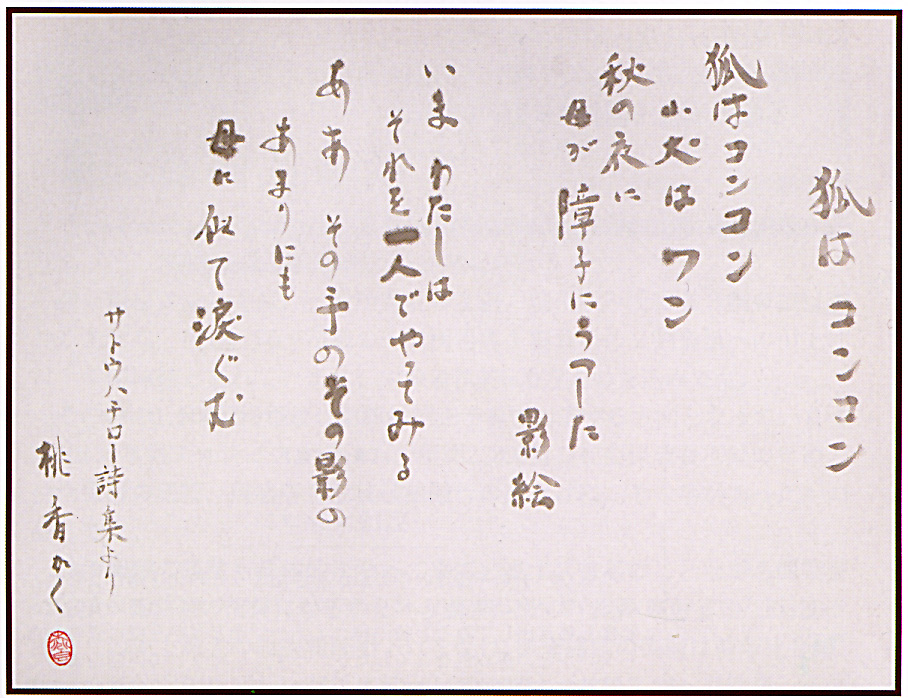 狐は コンコン
狐はコンコン
小犬は ワン
秋の夜に
母が 障子にうつした
影絵
いま わたしは
それを一人でやってみる
ああ その手のその影の
あまりにも
母に似て涙ぐむ
サトウハチロー詩集より
桃香かく